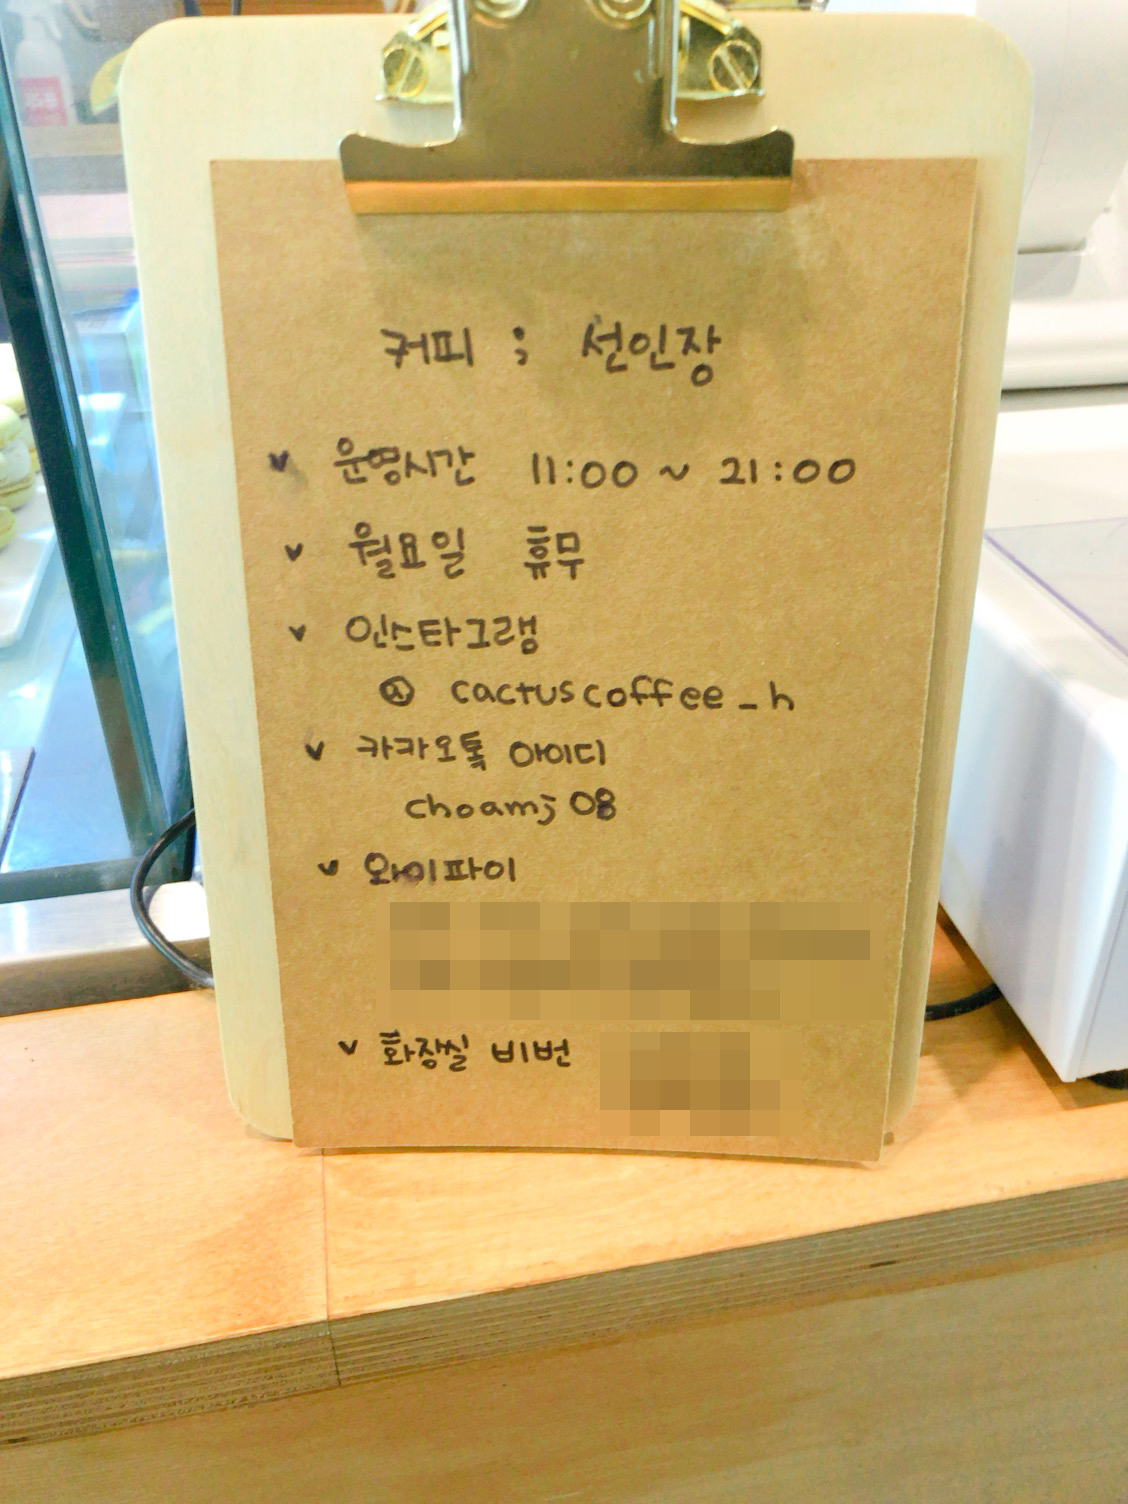 커피 ; 선인장
v 운영시간 11:00 ~ 21:00
v 월요일 휴무
v 인스타그램
@ cactuscoffee_h
v 카카오톡 아이디
choamj08
v 와이파이
v 화장씰 비번